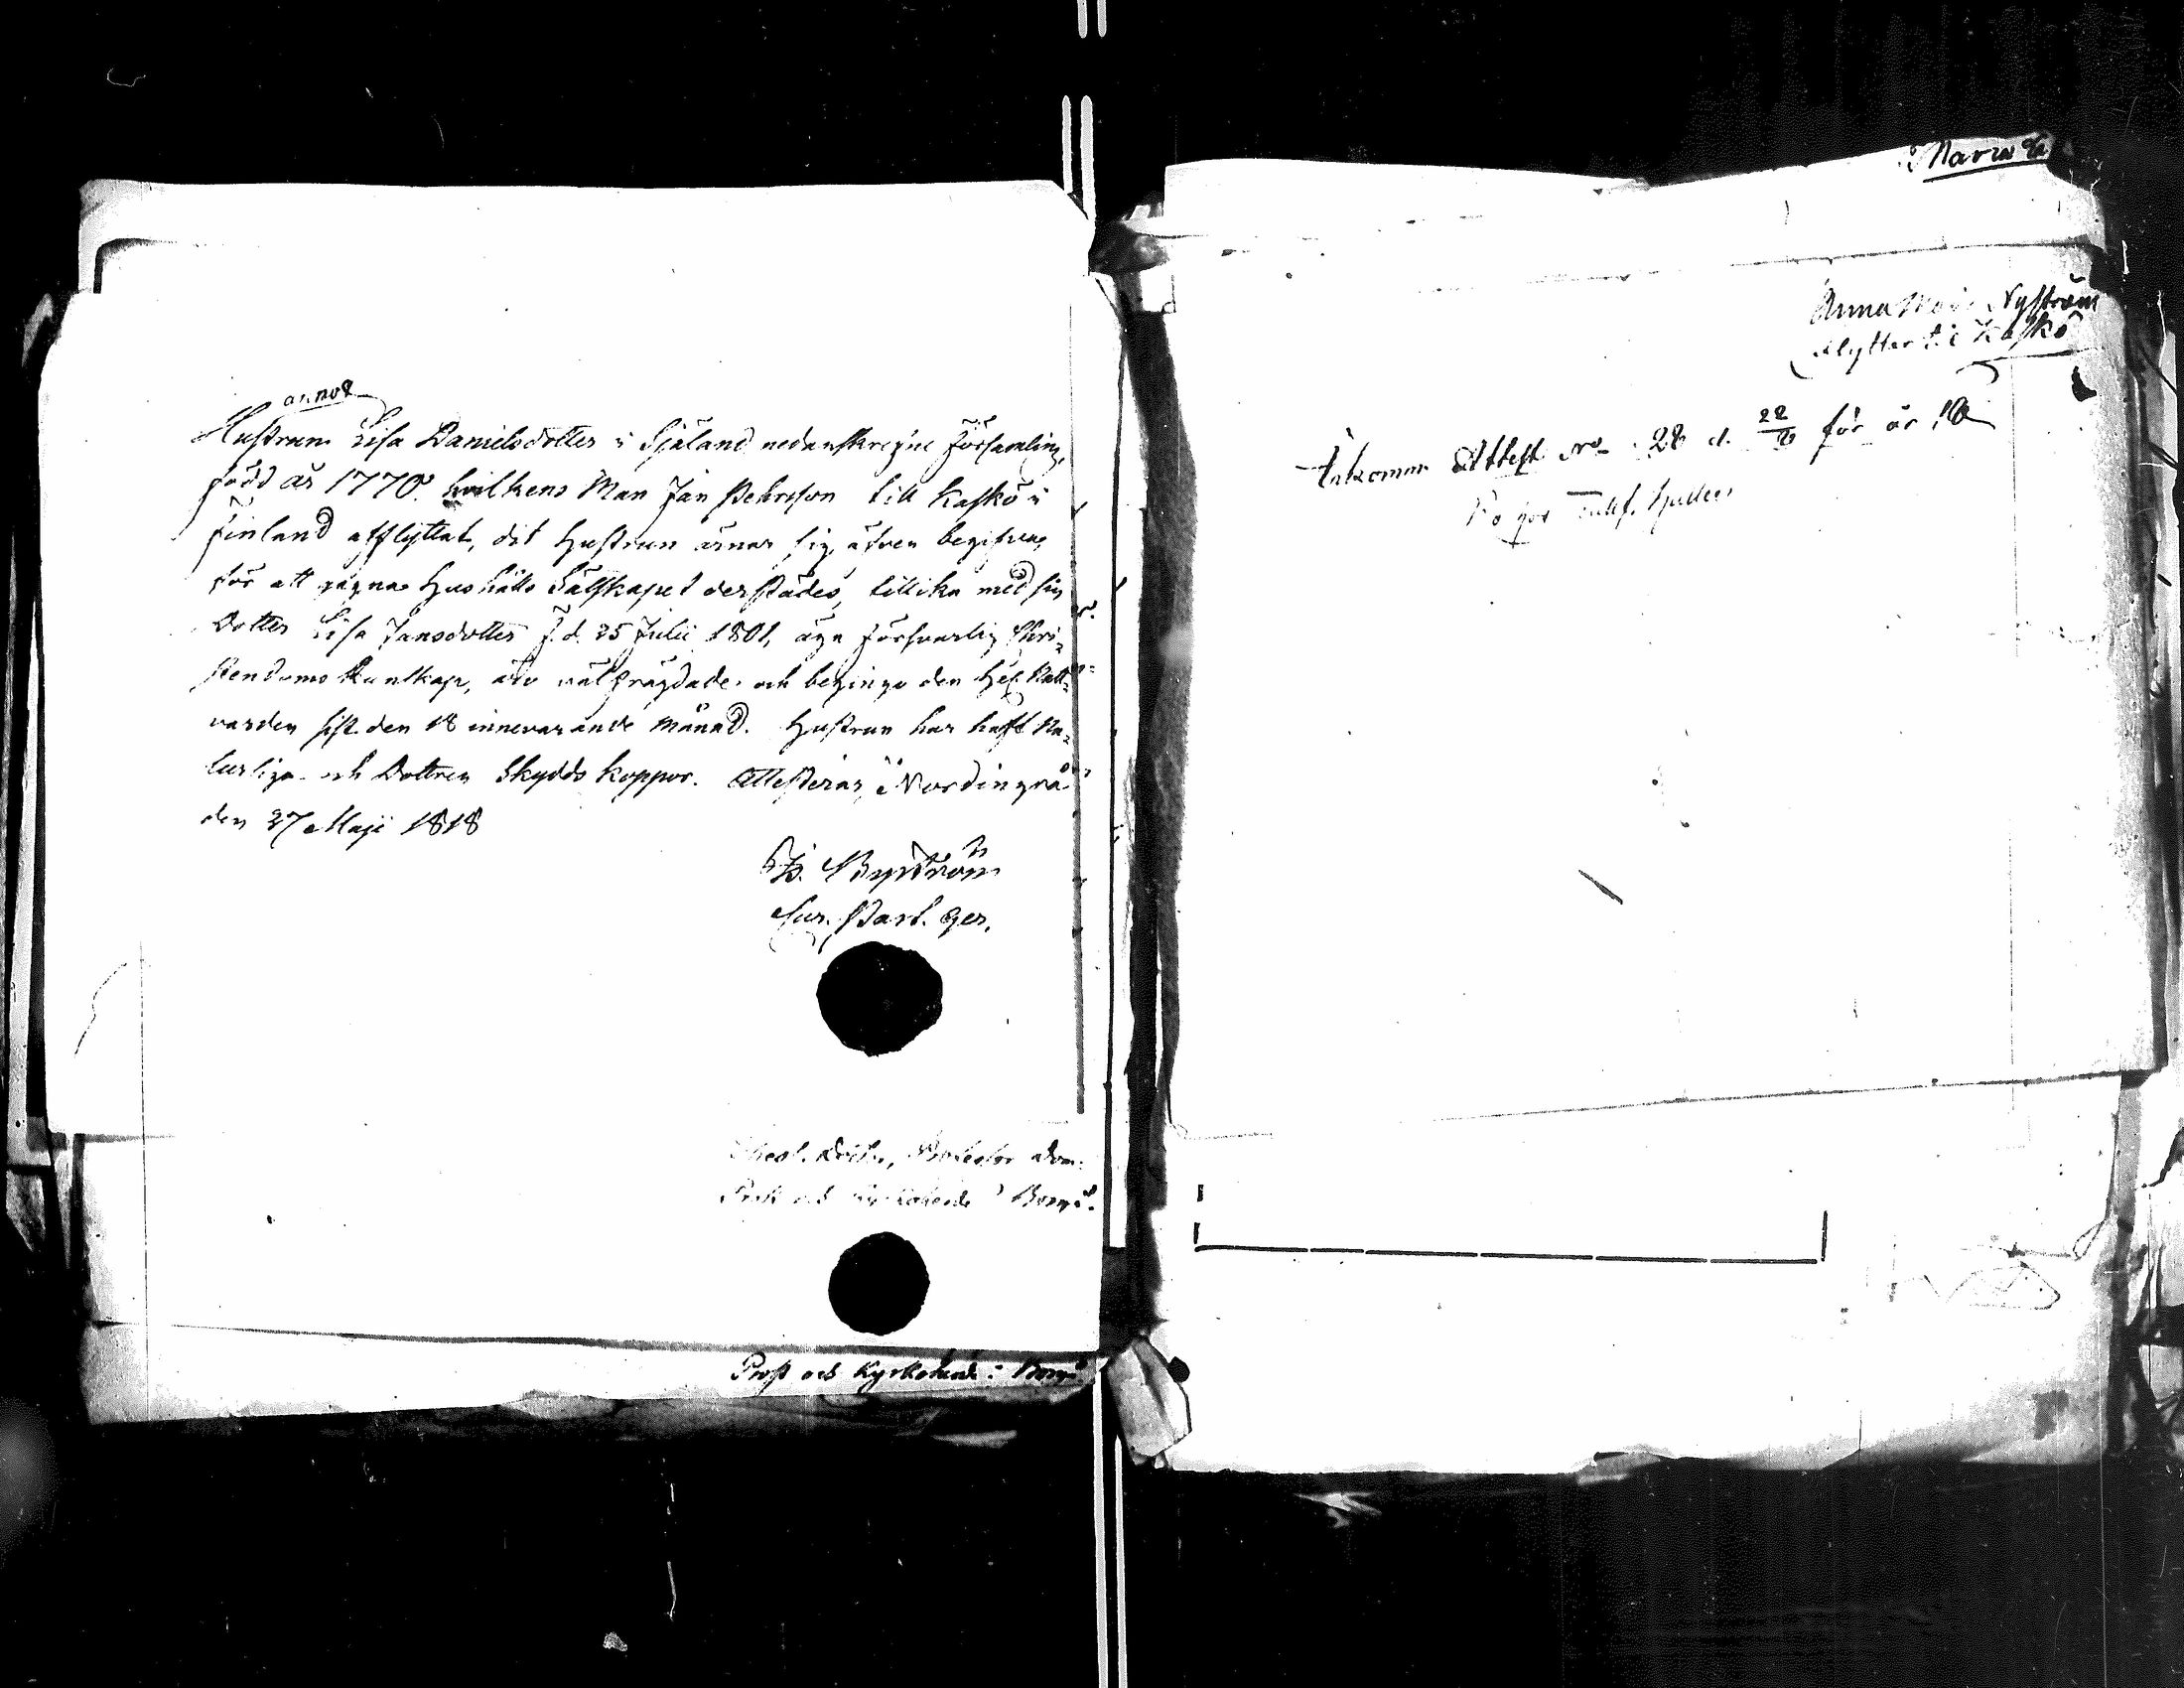 annos
Hustrun Lisa Danielsdotter i Själand nedanskrefne Församling,
född år 1770, hvilkens Man Jan Pehrsson till Kaskö i
Finland afflyttat, dit Hustrun ärnar sig äfven begifva,
för att ägna Hushålls Sälskapet derstädes, tillika med sin
Dotter Lisa Jansdotter f. d. 25 Julii 1801, äga försvarlig Chri-
stendoms Kunskap, äro välfrägdade och begingo den Hel. Natt-
varden sist den 18 innevarande Månad. Hustrun har haft Na-
turliga och Dottren Skydds koppor. Attesteras, i Nordingrå
den 27 Maji 1818
Byström
Cur. Past. ger.
Prost och Kyrkoherde i Borgå.
Prost och Kyrkoherde i Borgå.
Maria
Anna Nyström
flyttar till Kaskö
Inkommen Attest No 28 d. 22 för år